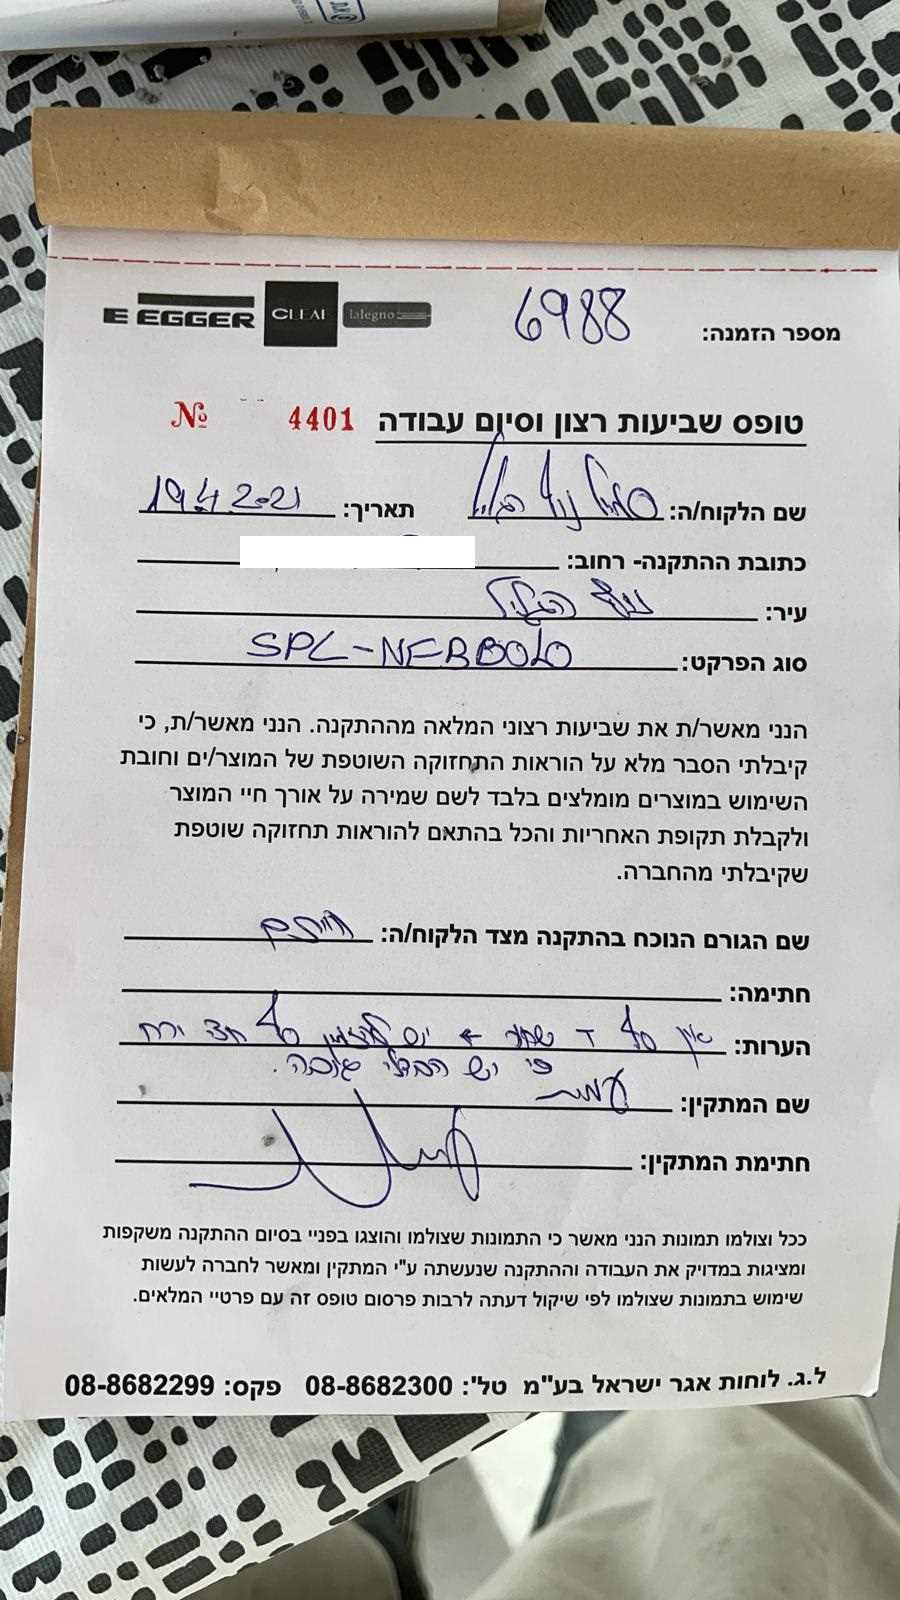 E EGGER CLEAF lalegno
מספר הזמנה: 6988
טופס שביעות רצון וסיום עבודה 4401 №
שם הלקוח/ה: נוף הגליל תאריך: 19.4.2021
כתובת ההתקנה- רחוב:
עיר: נוף הגליל
סוג הפרקט: SPL-NERBOLO
הנני מאשר/ת את שביעות רצוני המלאה מההתקנה. הנני מאשר/ת, כי
קיבלתי הסבר מלא על הוראות התחזוקה השוטפת של המוצר/ים וחובת
השימוש במוצרים מומלצים בלבד לשם שמירה על אורך חיי המוצר
ולקבלת תקופת האחריות והכל בהתאם להוראות תחזוקה שוטפת
שקיבלתי מהחברה.
שם הגורם הנוכח בהתקנה מצד הלקוח/ה:
חתימה:
הערות: אין
כי יש הבדלי גובה.
שם המתקין:
חתימת המתקין:
ככל וצולמו תמונות הנני מאשר כי התמונות שצולמו והוצגו בפניי בסיום ההתקנה משקפות
ומציגות במדויק את העבודה וההתקנה שנעשתה ע"י המתקין ומאשר לחברה לעשות
שימוש בתמונות שצולמו לפי שיקול דעתה לרבות פרסום טופס זה עם פרטיי המלאים.
ל.ג. לוחות אגר ישראל בע"מ טל': 08-8682300 פקס: 08-8682299